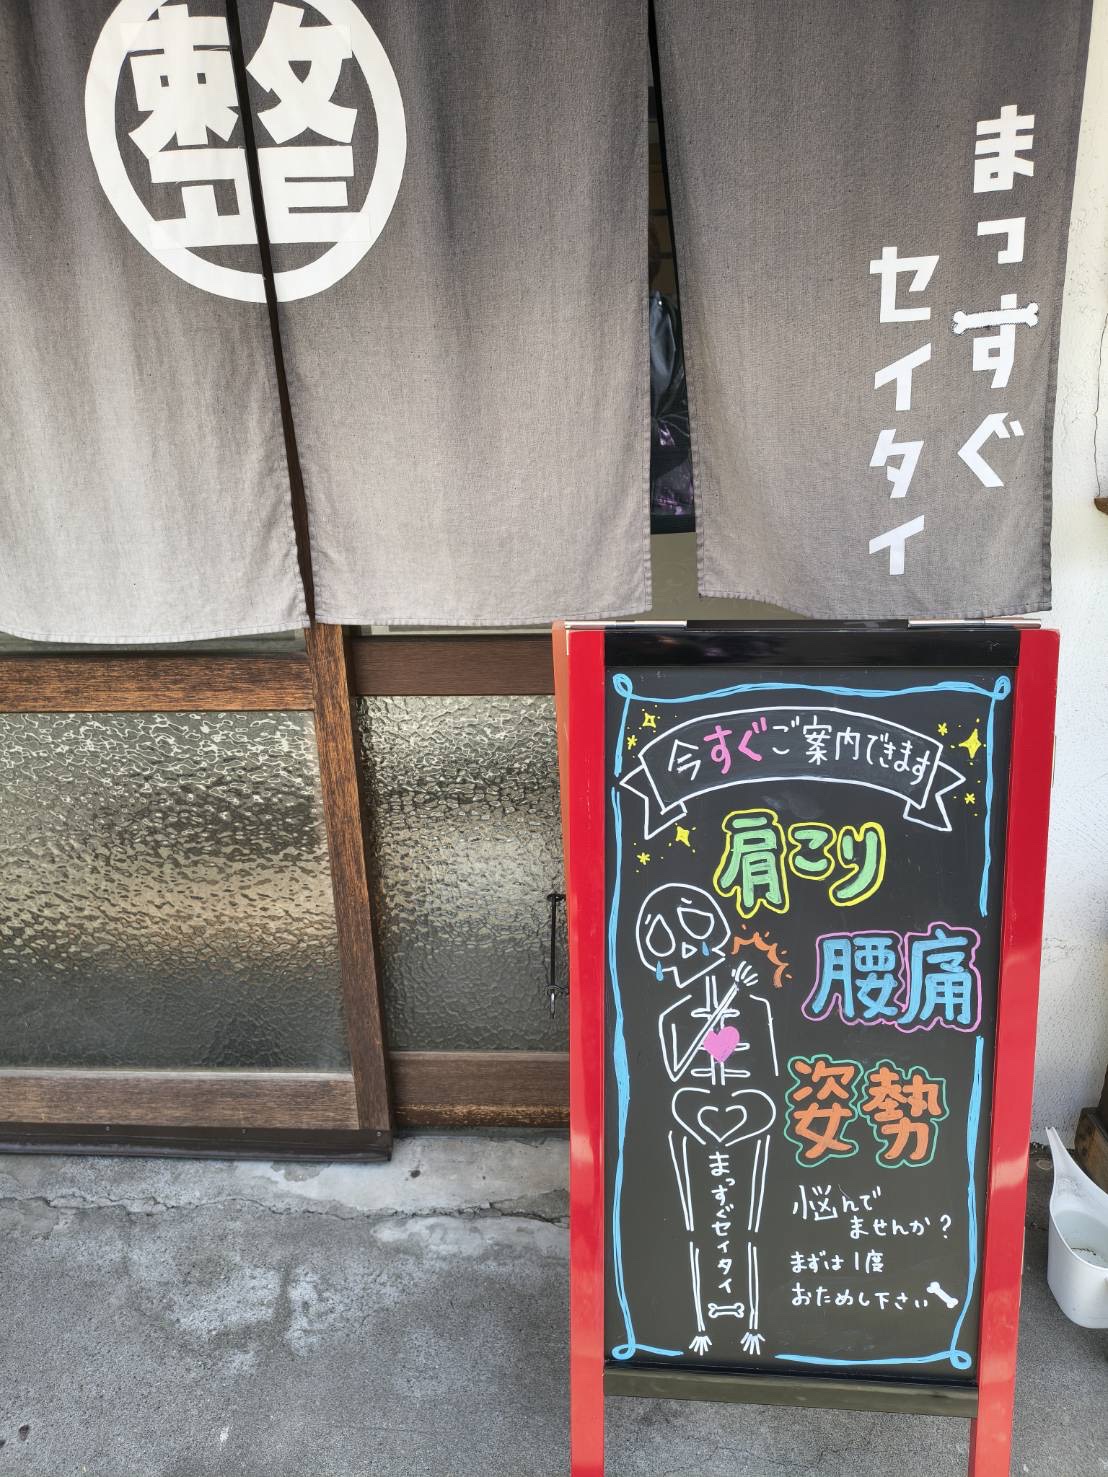 整
まっすぐ
セイタイ
今すぐご案内できます
肩こり
腰痛
姿勢
悩んで
ませんか?
まずは1度
おためし下さい
まっすぐセイタイ